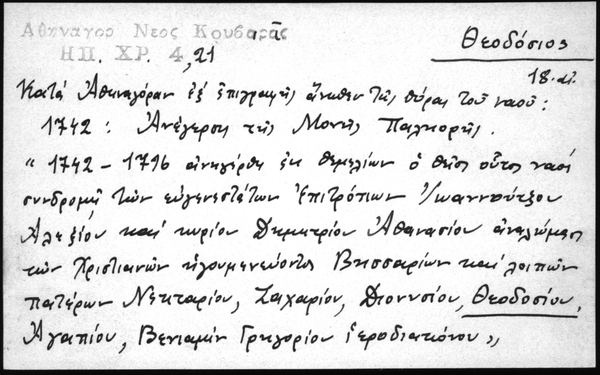 Αθηναγορ Νεος Κουβαρᾶς
ΗΠ. ΧΡ. 4, 21
Θεοδόσιος
18. αἰ.
Κατά Ἀθηναγόραν ἐξ ἐπιγραφῆς ἄνωθεν τῆς θύρας τοῦ ναοῦ:
1742: Ἀνέγερση τῆς Μονῆς Παλιορῆς.
" 1742 – 1796 ἀνηγέρθη ἐκ θεμελίων ὁ θεῖος οὗτος ναός
συνδρομῇ τῶν εὐγενεστάτων Ἐπιτρόπων Ἰωαννούτζου
Ἀλεξίου καί κυρίου Δημητρίου Ἀθανασίου ἀναλώμασι
τῶν Χριστιανῶν ἡγουμενεύοντος Βησσαρίων καί λοιπῶν
πατέρων Νεκταρίου, Ζαχαρίου, Διονυσίου, Θεοδοσίου,
Ἀγαπίου, Βενιαμίν Γρηγορίου ἱεροδιακόνου "